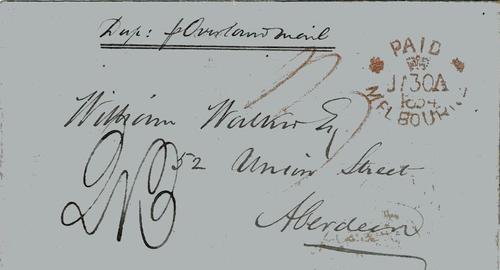 Dup: p Overland mail
PAID
1854
MELBOURNE
William Walker Esq
52 Union Street
Aberdeen